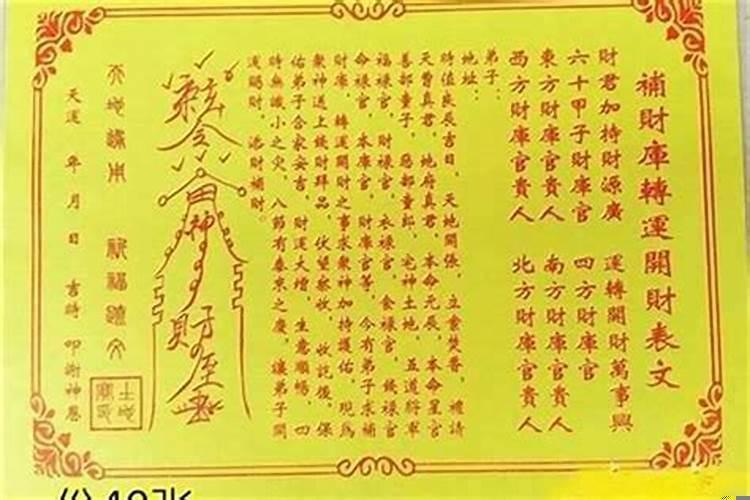 補財庫轉運開財表文
財君加持財源廣 運轉開財萬事興
六十甲子財庫官 四方財庫官
東方財庫官貴人 南方財庫官貴人
西方財庫官貴人 北方財庫官貴人
弟子：
地址：
時值良辰吉日，天地開張，立案焚香，禮請
天曹真君，地府真君，本命元辰，本命星官
善部童子，惡部童郎，宅神土地，五道將軍
福祿官，財祿官，衣祿官，食祿官，錢祿官
命祿官，本庫官，財庫官等，今有弟子求補
財庫，轉運開財之事求衆神加持護佑，現爲
衆神送上錢財拜品，伏望察收，收訖後，保
佑弟子合家安吉，財運大增，生意順暢，四
時無纖小之灾，八節有泰來之慶，讓弟子開
運賜財，添財補財。
神
財庫
祈福疏文
天運 年 月 日 吉時 叩謝神恩